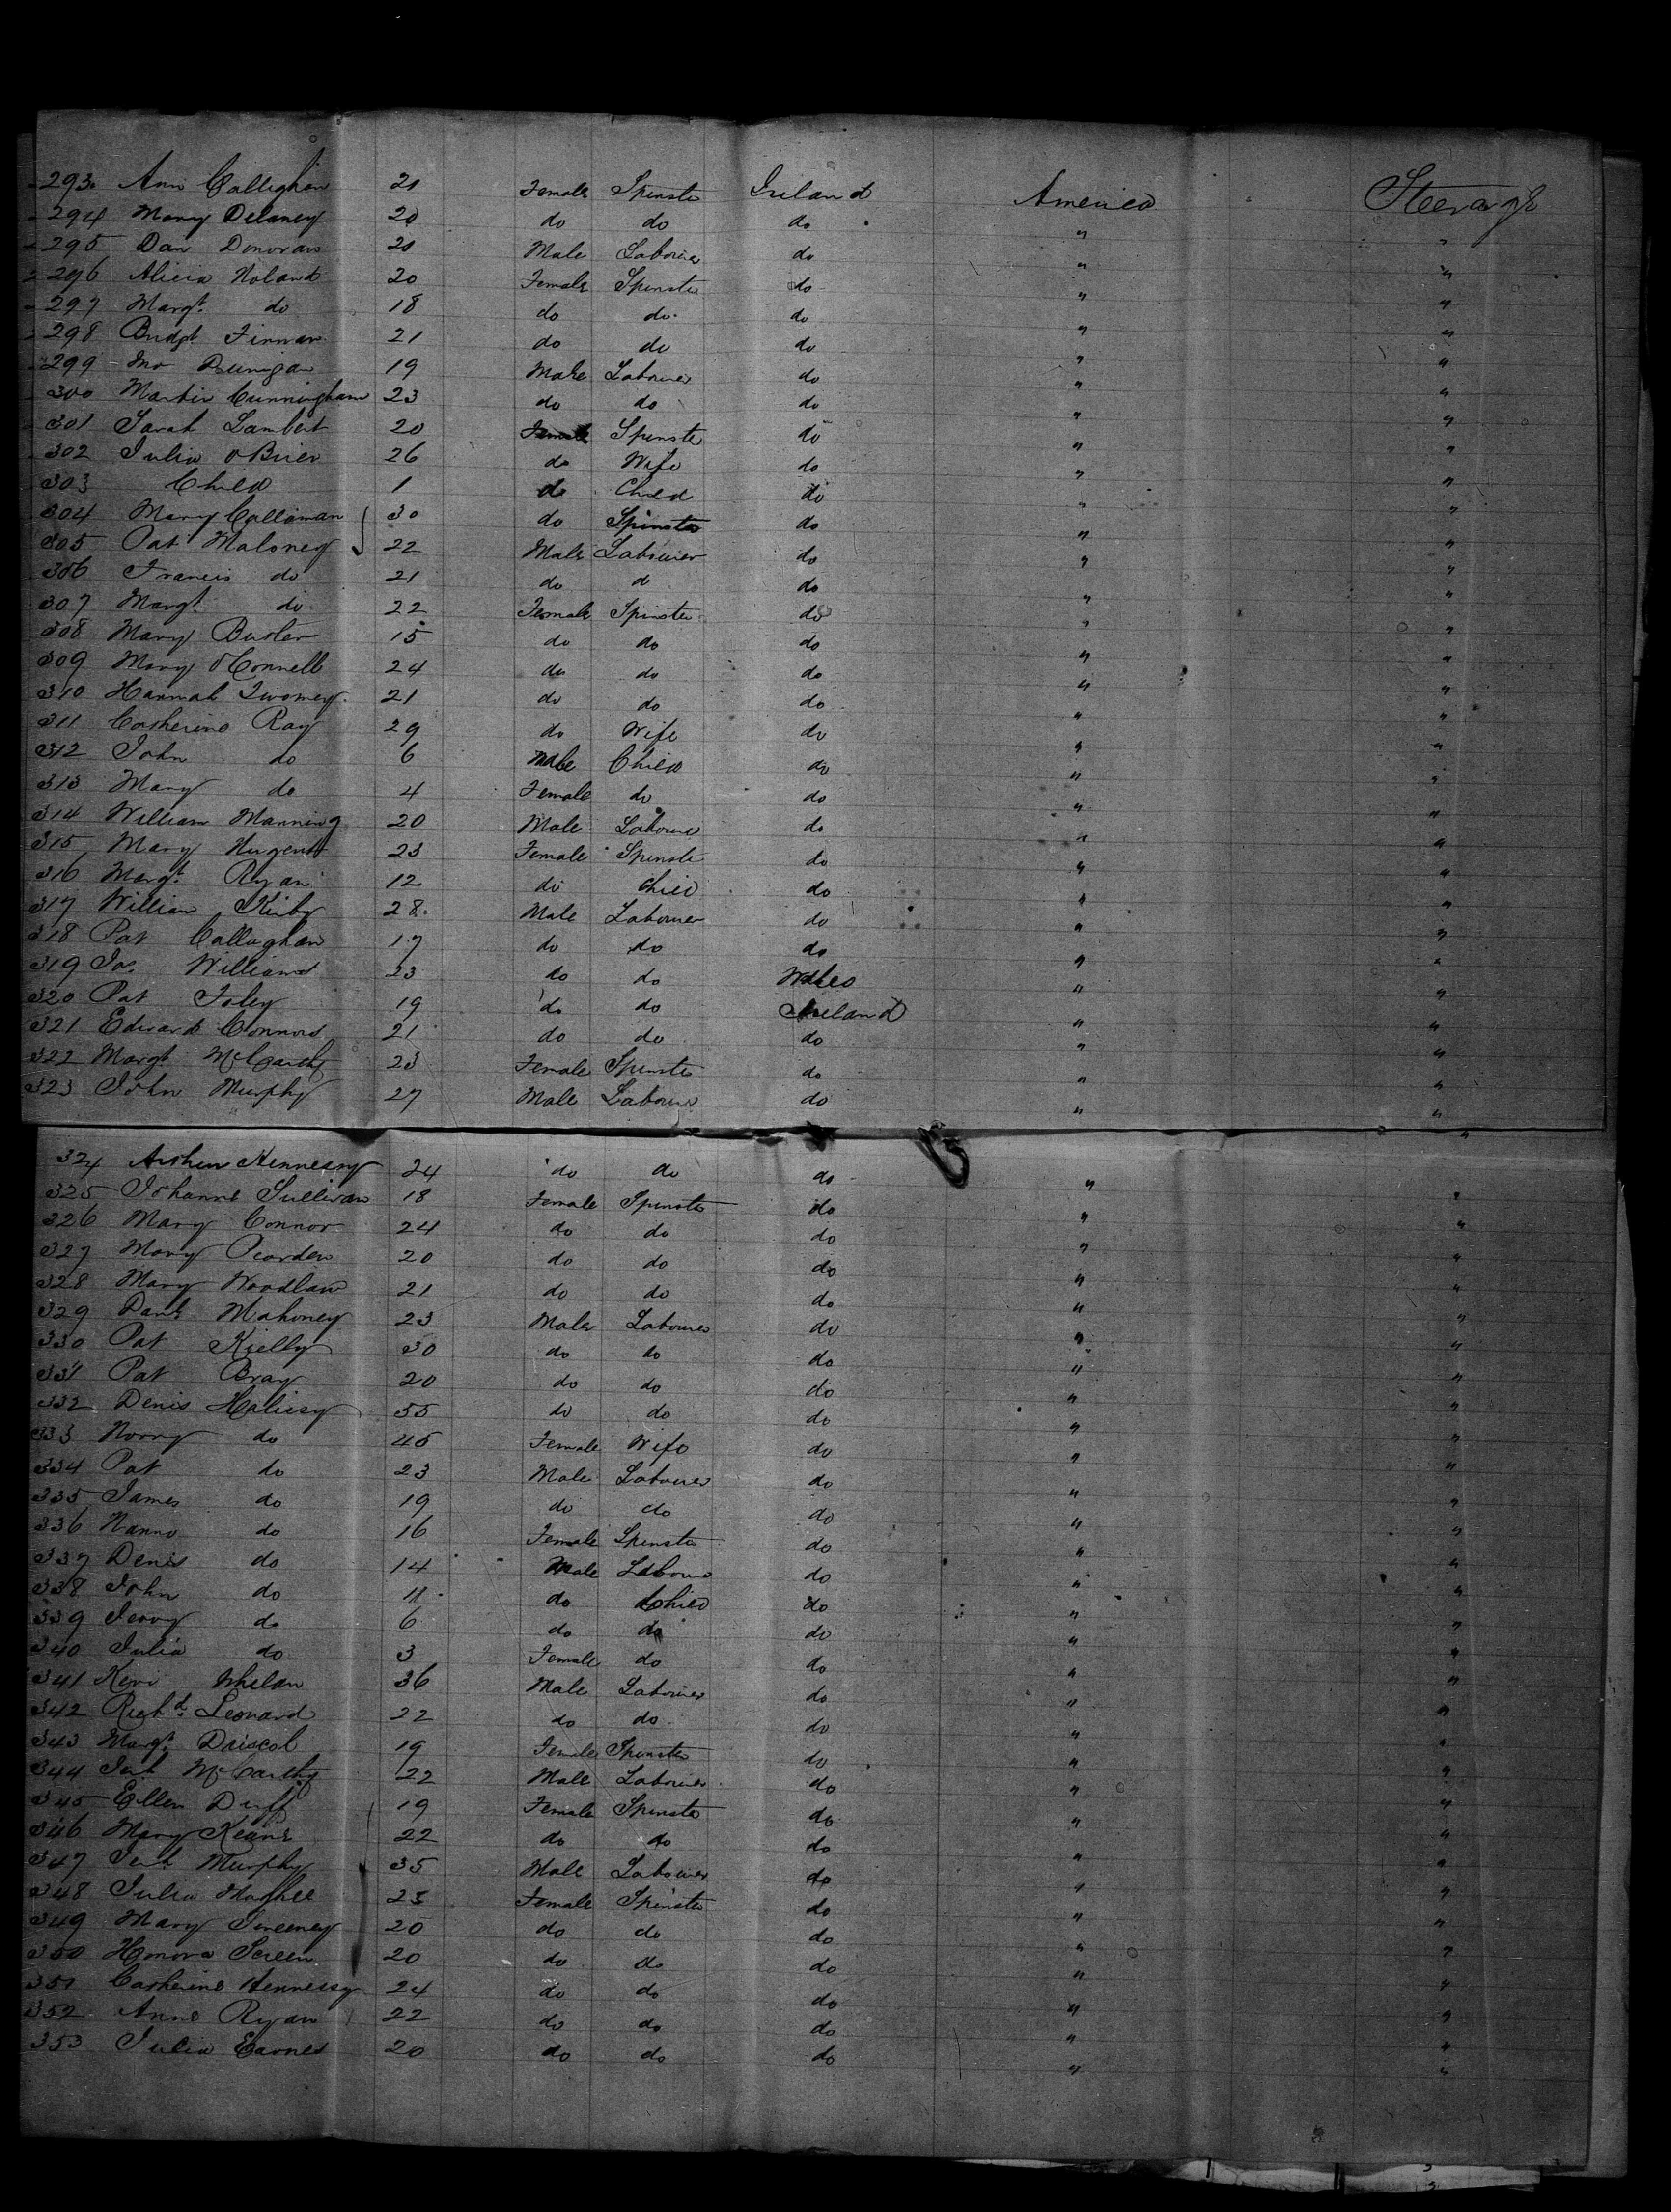 293. Ann Callighan 21 Female Spinster Ireland America Steerage
294 Mary Delaney 20 do do do " "
295 Dan Donovan 21 Male Labourer do " "
296 Alicia Noland 20 Female Spinster do " "
297 Margt. do 18 do do do " "
298 Bridgt Finnan 21 do do do " "
299 Dunigan 19 Male Labourer do " "
300 Martin Cunningham 23 do do do " "
301 Sarah Lambert 20 Female Spinster do " "
302 Julia O'Brien 26 do Wife do " "
303 Child 1 do Child do " "
304 Mary Callaman 30 do Spinster do " "
305 Pat Maloney 22 Male Labourer do " "
306 Francis do 21 do d do " "
307 Margt. do 22 Female Spinster do " "
308 Mary 15 do do do " "
309 Mary O'Connell 24 do do do " "
310 Hannah Twomey 21 do do do " "
311 Catherine Ray 29 do Wife do " "
312 John do 6 Male Child do " "
313 Mary do 4 Female do do " "
314 William Manning 20 Male Labourer do " "
315 Mary Nugent 23 Female Spinster do " "
316 Margt. Ryan 12 do Child do " "
317 William Kirby 28. Male Labourer do " "
318 Pat Callaghan 17 do do do " "
319 Jas. Williams 23 do do Wales " "
320 Pat Foley 19 do do Ireland " "
321 Edward Connors 21 do do do " "
322 Margt. McCarthy 23 Female Spinster do " "
323 John Murphy 27 Male Labourer do " "
324 Arthur Hennessy 24 do do do " "
325 Johanna Sullivan 18 Female Spinster do " "
326 Mary Connor 24 do do do " "
327 Mary 20 do do do " "
328 Mary Woodlaw 21 do do do " "
329 Danl. Mahoney 23 Male Labourer do " "
330 Pat Kielly 30 do do do " "
331 Pat Bray 20 do do do " "
332 Denis 55 do do do " "
333 Norry do 45 Female Wife do " "
334 Pat do 23 Male Labourer do " "
335 James do 19 do do do " "
336 Nanno do 16 Female Spinster do " "
337 Denis do 14 Male Labourer do " "
338 John do 11 do Child do " "
339 Jerry do 6 do do do " "
340 Julia do 3 Female do do " "
341 Whelan 36 Male Labourer do " "
342 Richd. Leonard 22 do do do " "
343 Margt. Driscol 19 Female Spinster do " "
344 McCarthy 22 Male Labourer do " "
345 Ellen Duff 19 Female Spinster do " "
346 Mary Keane 22 do do do " "
347 Murphy 35 Male Labourer do " "
348 Julia 25 Female Spinster do " "
349 Mary Sweeney 20 do do do " "
350 Honora 20 do do do " "
351 Catherine Hennessy 24 do do do " "
352 Anne Ryan 22 do do do " "
353 Julia 20 do do do " "